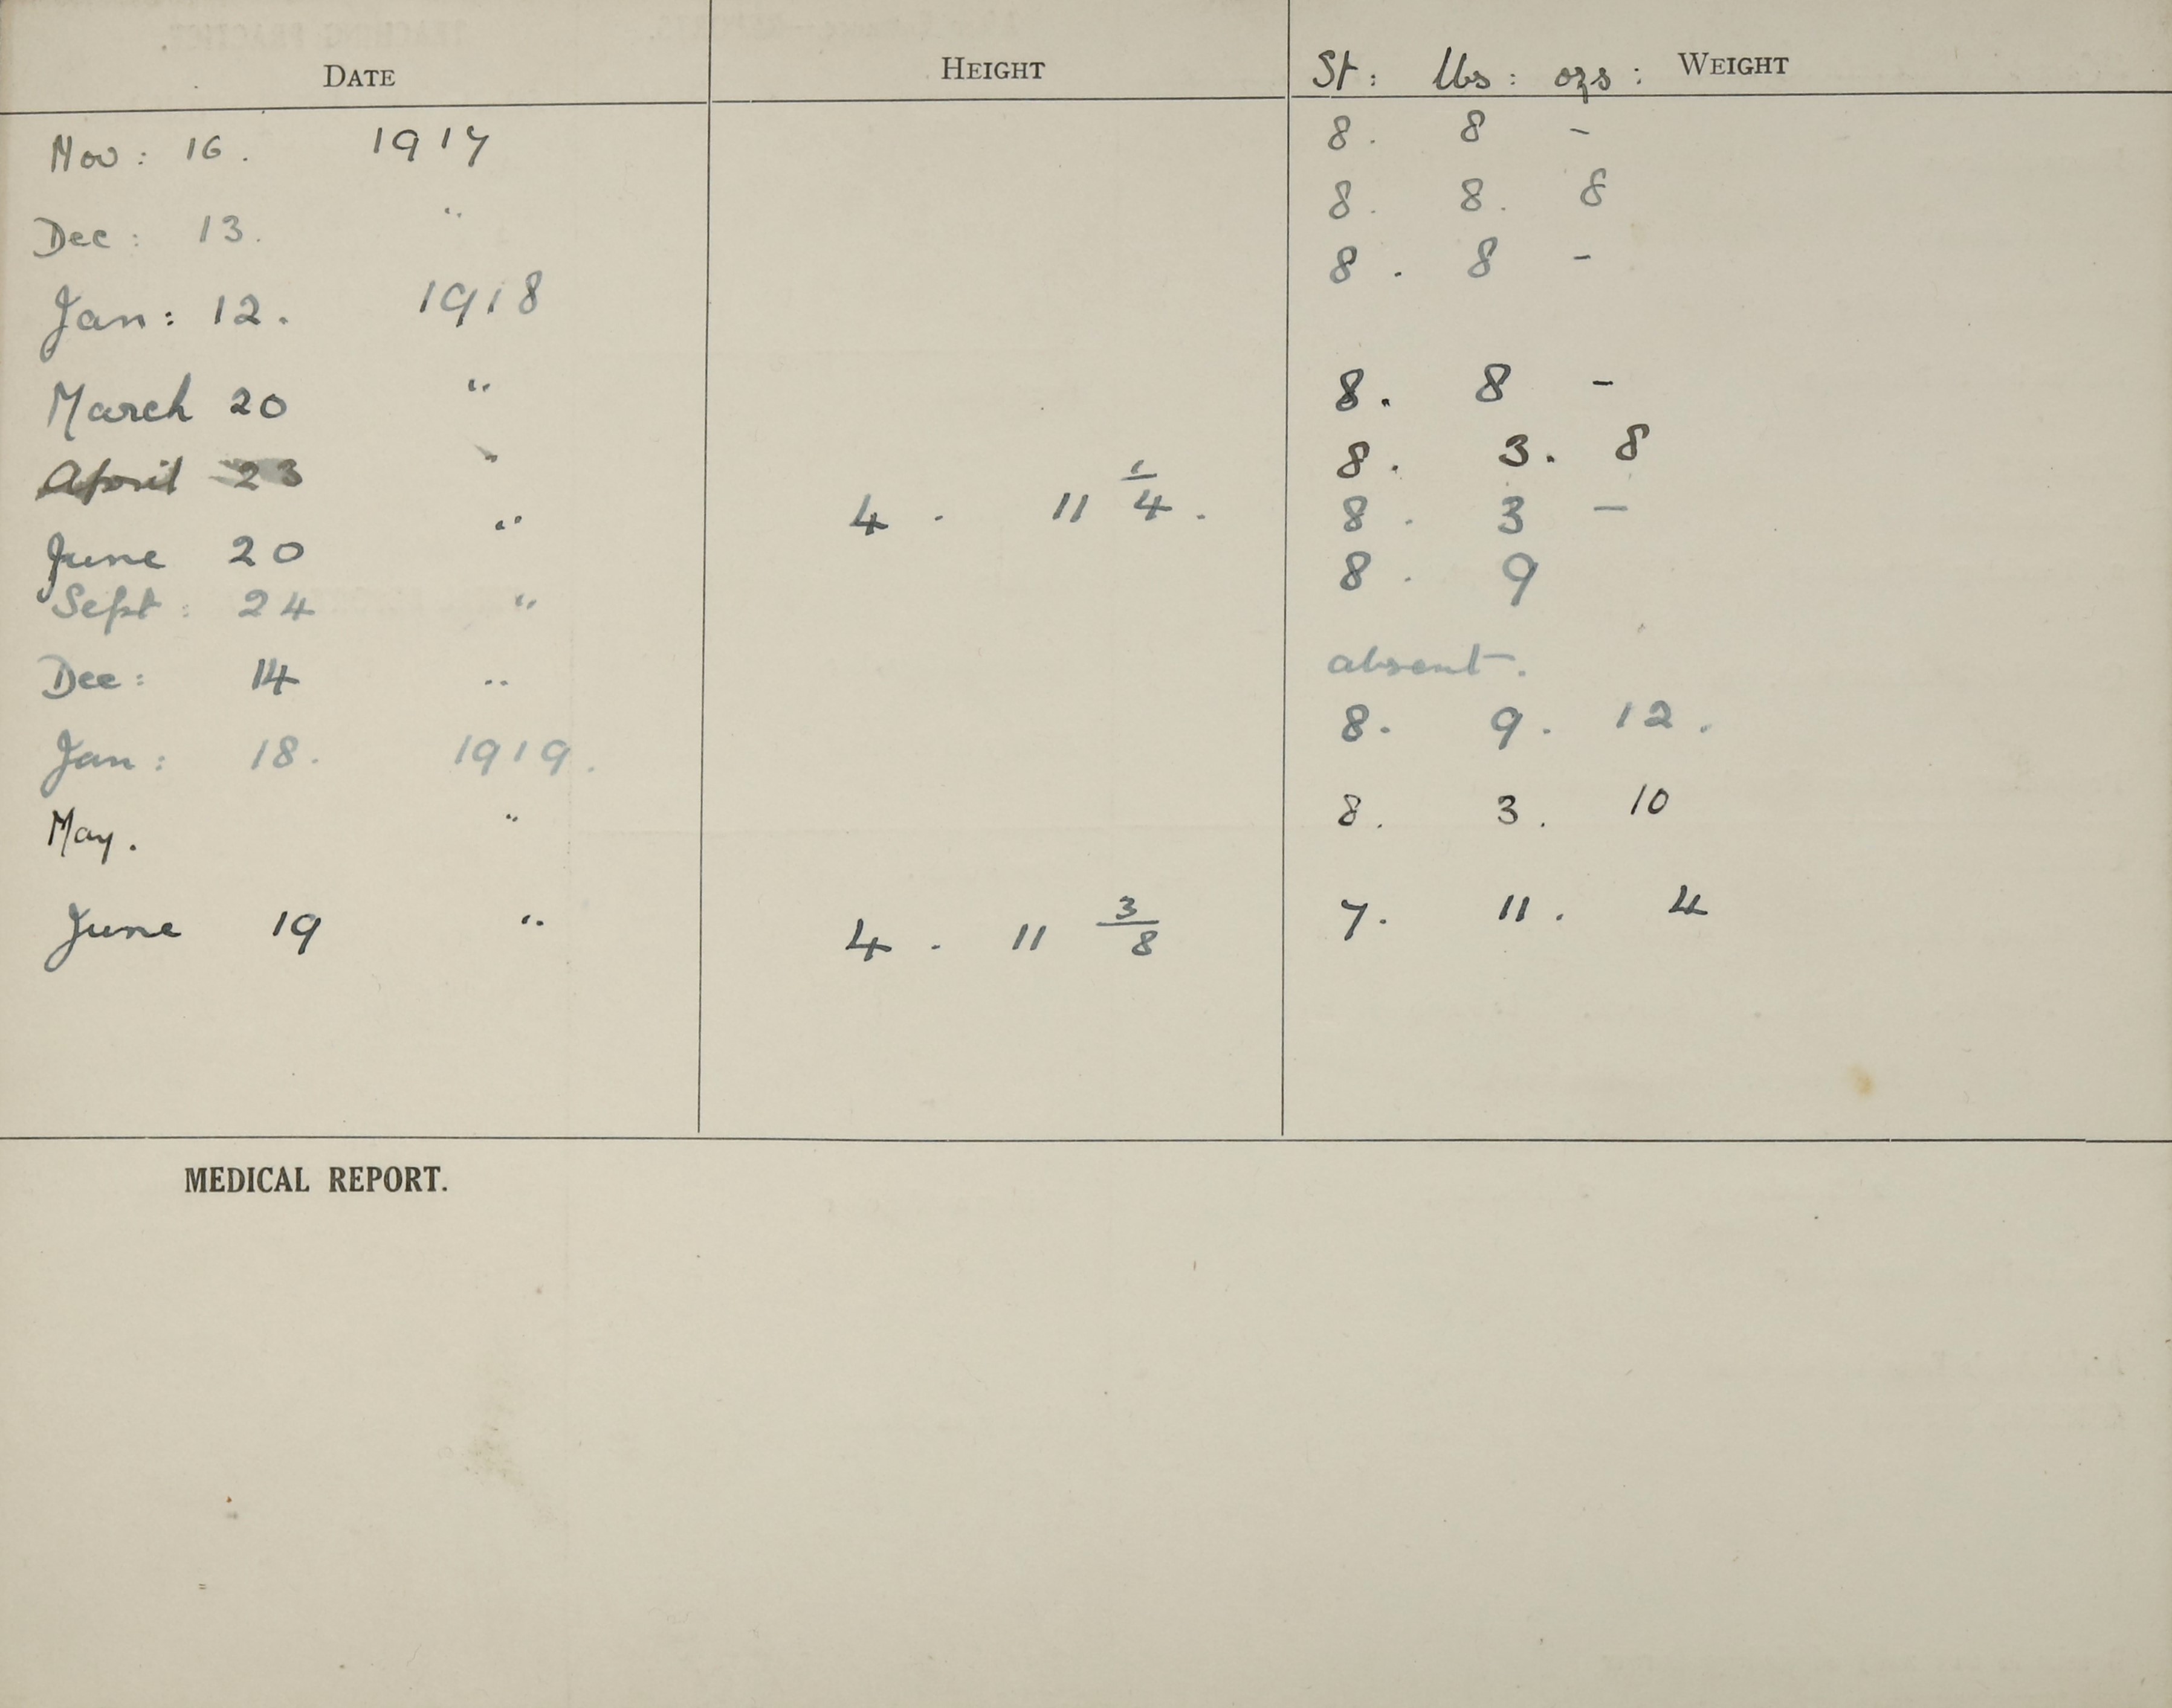 DATE HEIGHT St: lbs: ozs: WEIGHT
Nov: 16. 1917 8. 8 -
Dec: 13. " 8. 8. 8
Jan: 12. 1918 8. 8 -
March 20 " 8. 8 -
April 23 " 8. 3. 8
June 20 " 4. 11 1/4. 8. 3 -
Sept: 24 " 8. 9
Dec: 14 " absent.
Jan: 18. 1919. 8. 9. 12.
May. " 8. 3. 10
June 19 " 4. 11 3/8 7. 11. 4
MEDICAL REPORT.